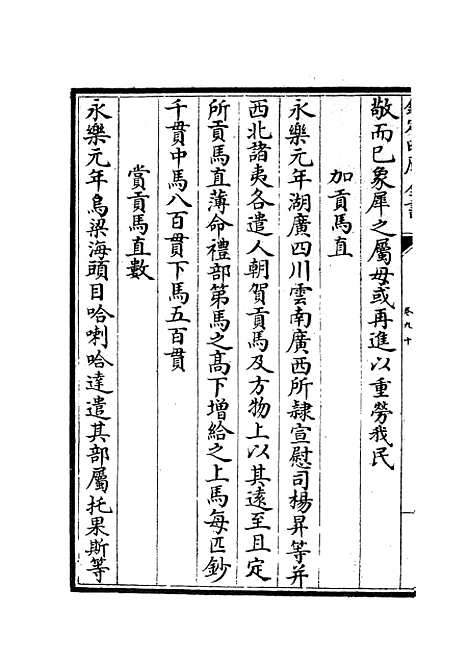 敬而已象犀之屬毋或再進以重勞我民
加貢馬直
永樂元年湖廣四川雲南廣西所隷宣慰司楊昇等并
西北諸夷各遣人朝賀貢馬及方物上以其遠至且定
所貢馬直薄命禮部第馬之高下增給之上馬每匹鈔
千貫中馬八百貫下馬五百貫
賞貢馬直數
永樂元年烏梁海頭目哈喇哈達遣其部屬托果斯等